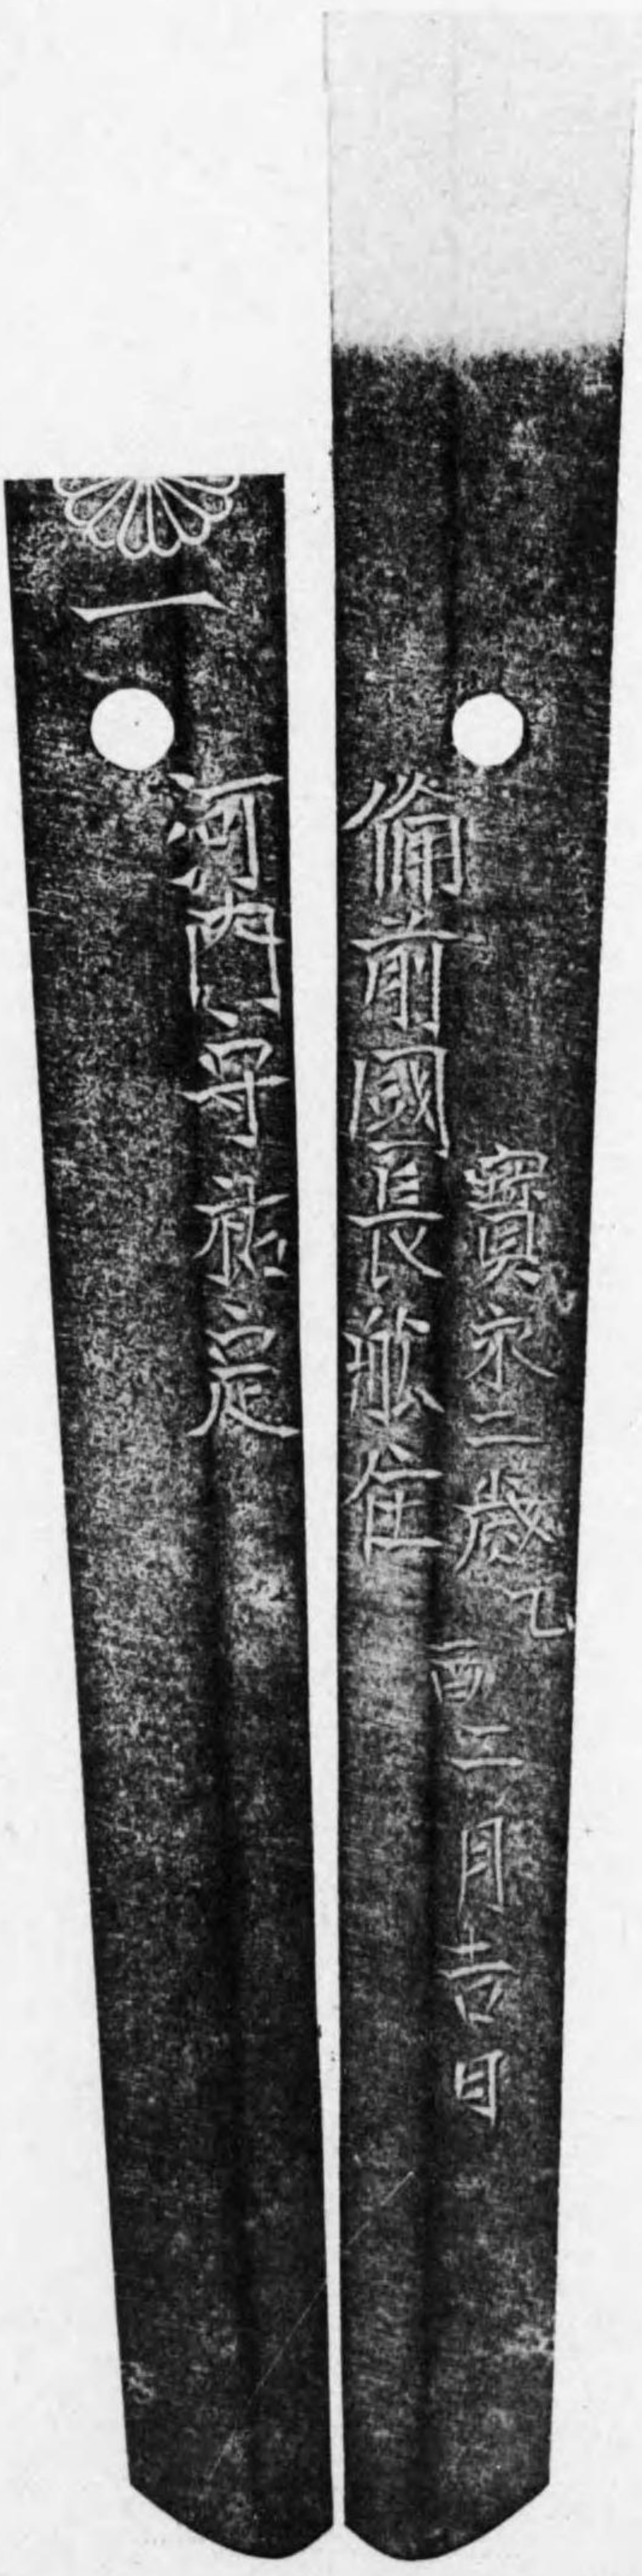 寶永二歳乙酉二月吉日
備前國長船住
一
河内守祐定